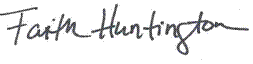 Faith Huntington